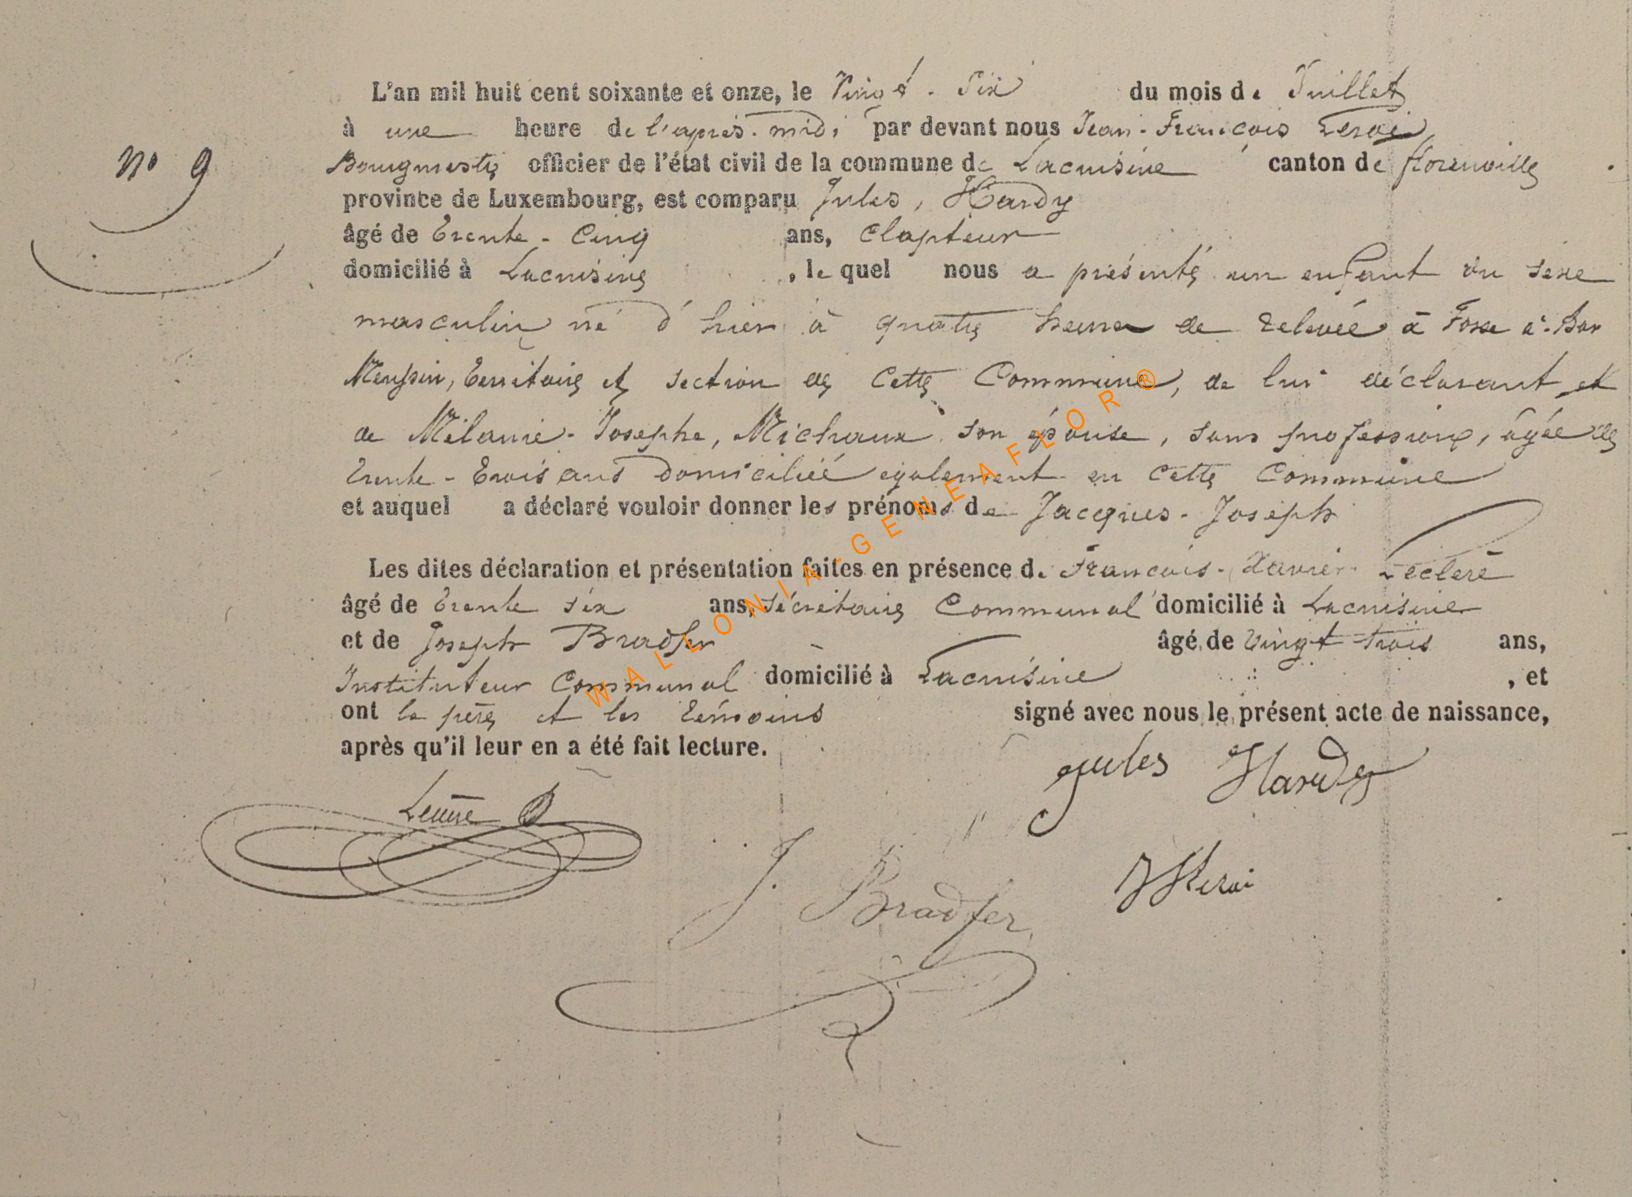 L'an mil huit cent soixante et onze, le Vingt-Six du mois de Juillet
à une heure de l'après-midi par devant nous Jean-François Leroi
N° 9
Bourgmestre officier de l'état civil de la commune de Lacuisine canton de florenville
province de Luxembourg, est comparu Jules, Hardy
âgé de Trente-Cinq ans,
domicilié à Lacuisine, le quel nous a présenté un enfant du sexe
masculin né d'hier à quatre heures de relevée à
territoire et section de cette Commune, de lui déclarant et
de Mélanie-Josephe, Michaux son épouse, sans profession, âgée de
trente-trois ans domiciliée également en cette Commune
et auquel a déclaré vouloir donner les prénoms de Jacques-Joseph
Les dites déclaration et présentation faites en présence de François-Xavier Leclère
âgé de trente six ans, secrétaire Communal domicilié à Lacuisine
et de Joseph Bradfer âgé de vingt trois ans,
Instituteur Communal domicilié à Lacuisine, et
ont le père et les témoins signé avec nous le présent acte de naissance,
après qu'il leur en a été fait lecture.
Jules Hardy
J. Bradfer
WALLONIA-GENEAFLOR®